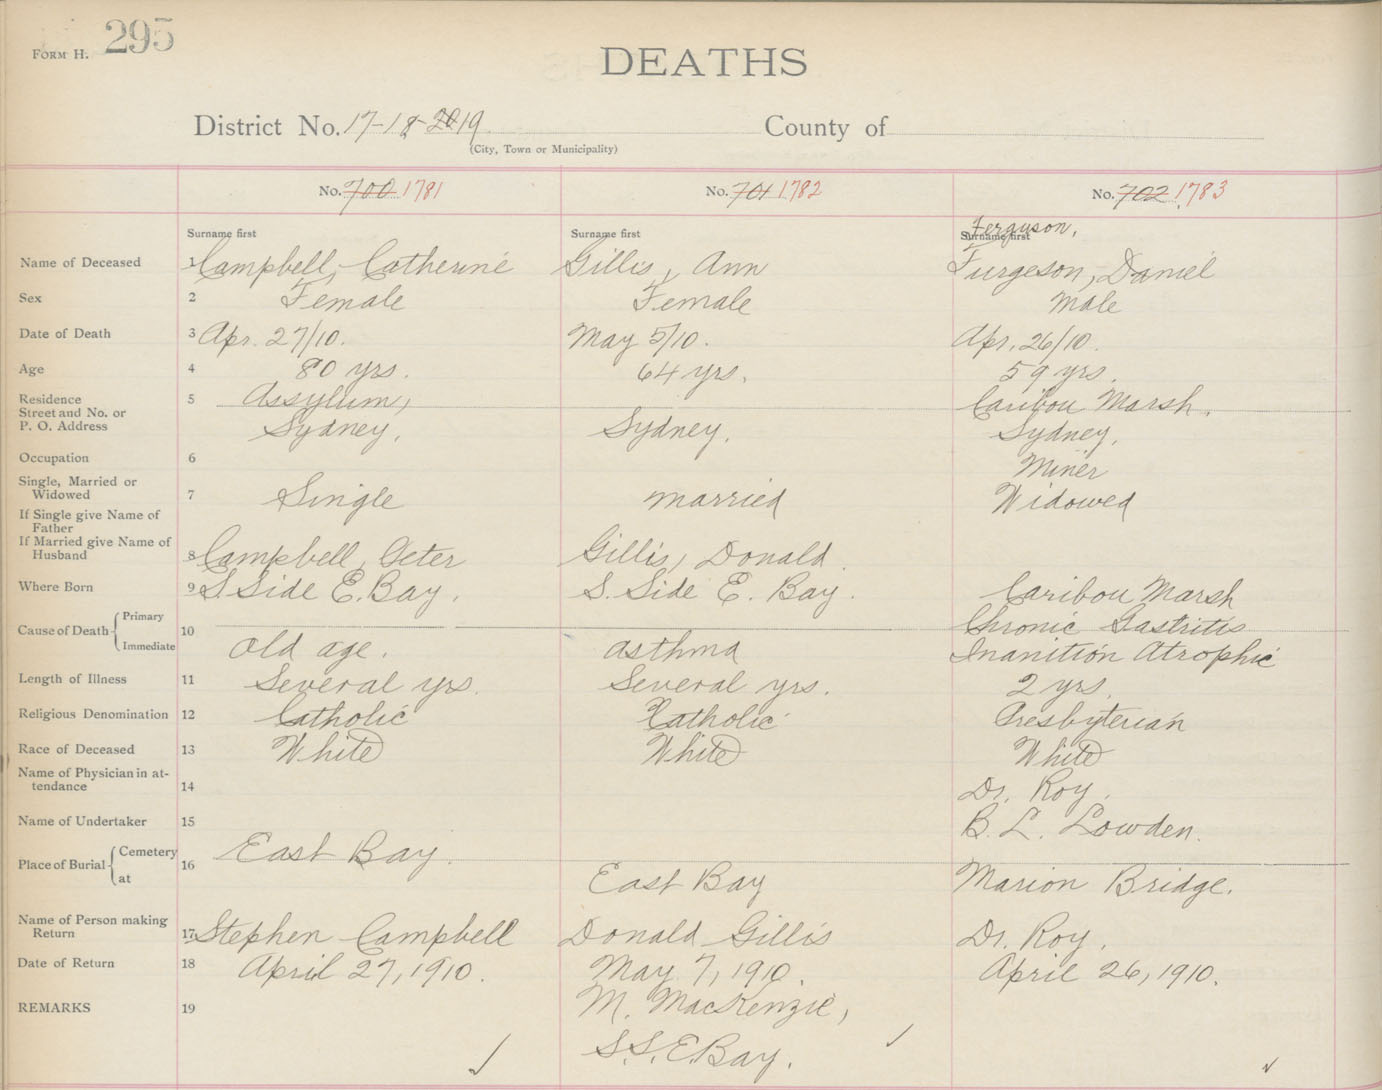 FORM H. 295
DEATHS
District No. 17-18-20 19
County of
(City, Town or Municipality)
No. 700 1781
No. 701 1782
No. 702 1783
Surname first
Surname first
Ferguson,
Surname first
Name of Deceased 1 Campbell, Catherine
Gillis, Ann
Furgeson, Daniel
Sex 2 Female
Female
Male
Date of Death 3 Apr. 27/10.
May 5/10.
Apr. 26/10.
Age 4 80 yrs.
64 yrs.
59 yrs.
Residence
Street and No. or
P. O. Address
5 Assylum,
Sydney.
Sydney.
Caribou Marsh.
Sydney.
Occupation 6
Miner
Single, Married or
Widowed
7 Single
married
Widowed
If Single give Name of
Father
If Married give Name of
Husband
8 Campbell, Peter
Gillis, Donald.
Where Born 9 S. Side E. Bay.
S. Side E. Bay.
Caribou Marsh
Cause of Death Primary
Immediate
10 old age.
asthma
Chronic Gastritis
Inanition Atrophic
Length of Illness 11 Several yrs.
Several yrs.
2 yrs.
Religious Denomination 12 Catholic
Catholic
Presbyterian
Race of Deceased 13 White
White
White
Name of Physician in at-
tendance
14
Dr. Roy.
Name of Undertaker 15
B. L. Lowden.
Place of Burial Cemetery
at
16 East Bay.
East Bay
Marion Bridge.
Name of Person making
Return
17 Stephen Campbell
Donald Gillis
Dr. Roy.
Date of Return 18 April 27, 1910.
May 7, 1910.
April 26, 1910.
REMARKS 19
M. MacKenzie,
S.S.E.Bay.